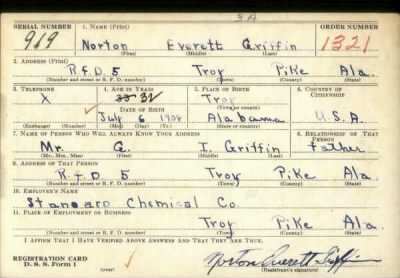 3A
SERIAL NUMBER 1. NAME (Print) ORDER NUMBER
919 Norton Everett Griffin 1321
(First) (Middle) (Last)
2. ADDRESS (Print)
R.F.D 5 Troy Pike Ala.
(Number and street or R. F. D. number) (Town) (County) (State)
3. TELEPHONE 4. AGE IN YEARS 5. PLACE OF BIRTH 6. COUNTRY OF CITIZENSHIP
X 33 32 Troy
DATE OF BIRTH (Town or county)
July 6 1908 Alabama U.S.A.
(Exchange) (Number) (Mo.) (Day) (Yr.) (State or country)
7. NAME OF PERSON WHO WILL ALWAYS KNOW YOUR ADDRESS 8. RELATIONSHIP OF THAT PERSON
Mr. G. I. Griffin father
(Mr., Mrs., Miss) (First) (Middle) (Last)
9. ADDRESS OF THAT PERSON
R.F.D 5 Troy Pike Ala.
(Number and street or R. F. D. number) (Town) (County) (State)
10. EMPLOYER'S NAME
Standard Chemical Co.
11. PLACE OF EMPLOYMENT OR BUSINESS
Troy Pike Ala.
(Number and street or R. F. D. number) (Town) (County) (State)
I AFFIRM THAT I HAVE VERIFIED ABOVE ANSWERS AND THAT THEY ARE TRUE.
REGISTRATION CARD
D. S. S. Form 1 (over) Norton Everett Griffin
(Registrant's signature)